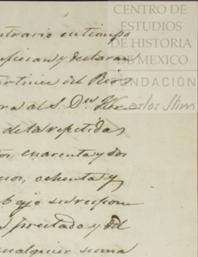 CENTRO DE
ESTUDIOS
DE HISTORIA
DE MEXICO
FUNDACIÓN
Carlos Slim
ntrario en tiempo
nfiesan y declaran
artinez del Rio
ra al S. Dn
de la repetida
tos, cuarenta y dos
nos, ochenta y
bajo su respon
s prectado y del
cualquier suma